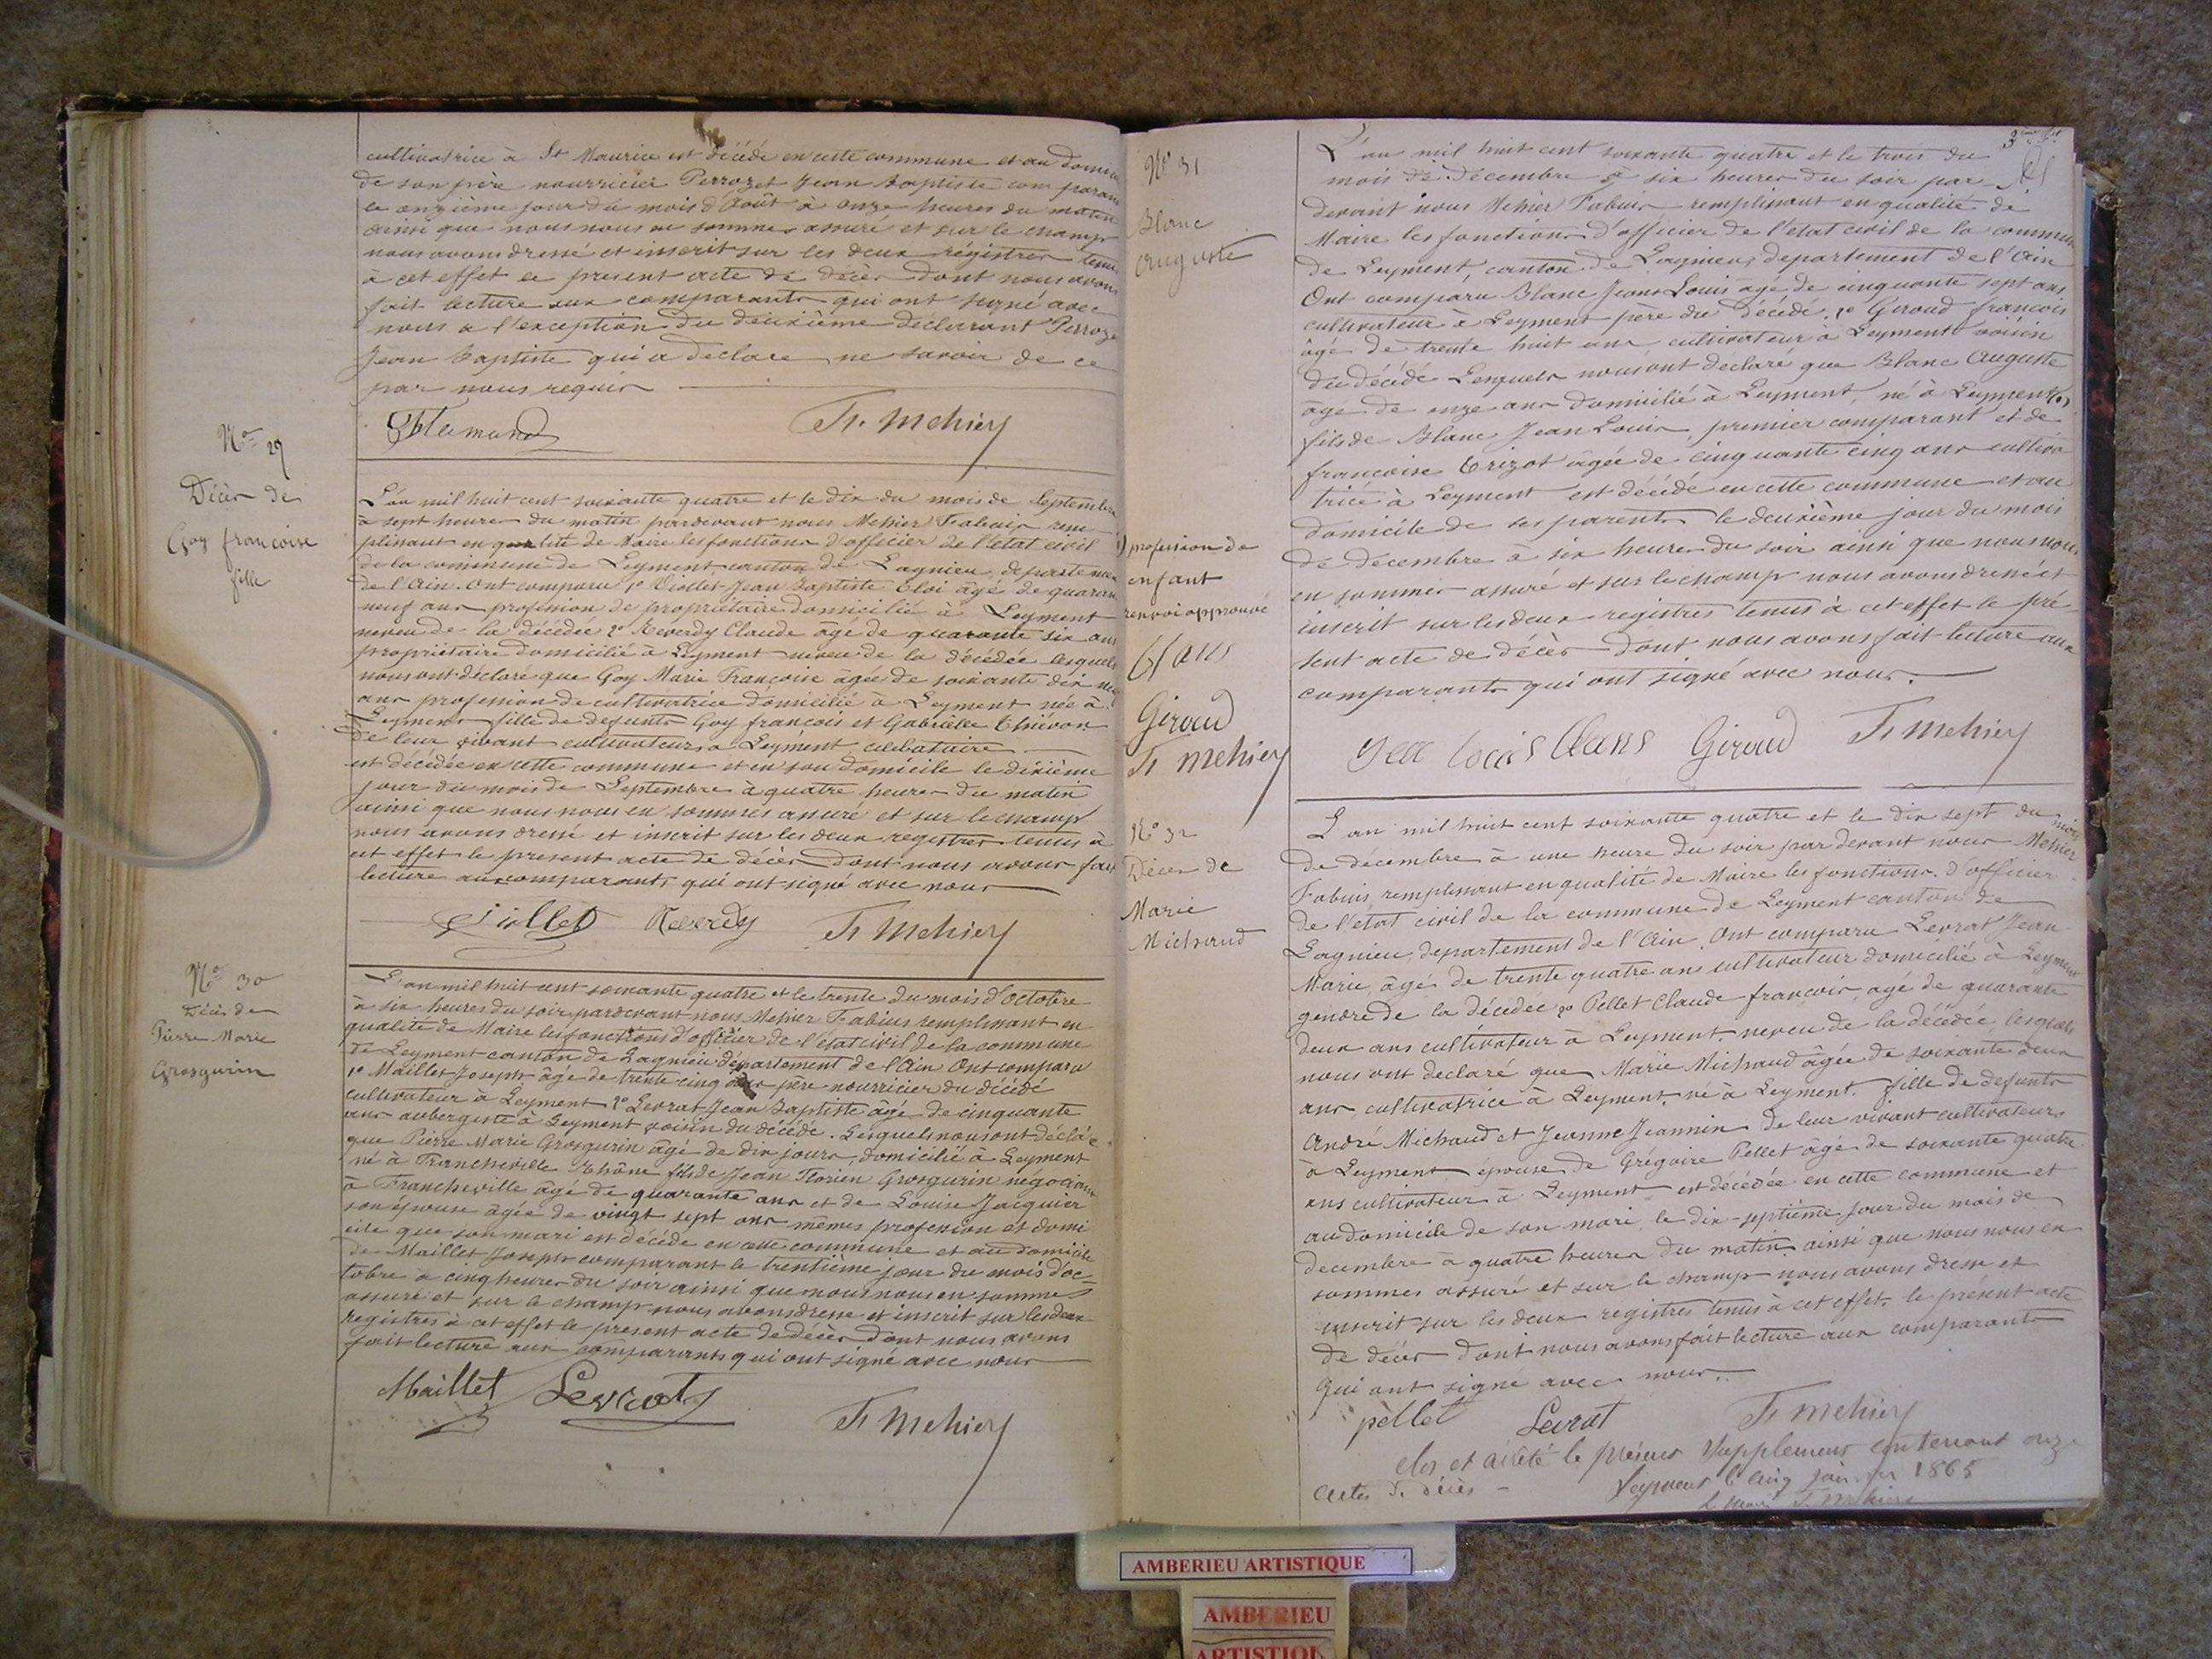 cultivatrice à St Maurice est décédé en cette commune et au domici
de son père nourricier Perrozet Jean Baptiste comparan
le onzième jour du mois d'Août à onze heures du matin
ainsi que nous nous en sommes assuré et sur le champ
nous avons dressé et inscrit sur les deux régistres tenus
à cet effet le present acte de décès dont nous avons
fait lecture aux comparants qui ont signé avec
nous a l'exception du deuxième declarant Perroze
Jean Baptiste qui a declare ne savoir de ce
par nous requis
Fs. Mehier
No 29
Décès de
Goy francoise
fille
L'an mil huit cent soixante quatre et le dix du mois de Septembre
à sept heures du matin pardevant nous Mehier Fabius rem
plissant en qualité de Maire les fonctions d'officier de l'état civil
de la commune de Leyment canton de Lagnieu, departemen
de l'Ain. Ont comparu 1o Viollet Jean Baptiste Eloi âgé de quaran
neuf ans profession de propriétaire domicilié à Leyment
neveu de la décédée 2o Reverdy Claude âgé de quarante six ans
propriétaire domicilié à Leyment neveu de la décédée lesquels
nous ont déclaré que Goy Marie Françoise âgée de soixante dix neu
ans profession de cultivatrice domicilié à Leyment née à
Leyment fille de defunts Goy françois et Gabrielle Thiévon
de leur vivant cultivateurs à Leyment celibataire
est décédée en cette commune et en son domicile le dixième
jour du mois de Septembre à quatre heures du matin
ainsi que nous nous en sommes assuré et sur le champ
nous avons dressé et inscrit sur les deux registres tenus à
cet effet le present acte de décès dont nous avons fait
lecture aux comparants qui ont signé avec nous
Viollet Reverdy Fs Mehier
No 30
Décès de
Pierre Marie
Grosgurin
L'an mil huit cent soixante quatre et le trente du mois d'octobre
à six heures du soir pardevant nous Mehier Fabius remplissant en
qualité de Maire les fonctions d'officier de l'état civil de la commune
de Leyment canton de Lagnieu département de l'Ain Ont comparu
1o Maillet Joseph âgé de trente cinq ans père nourricier du décédé
cultivateur à Leyment 2o Levrat Jean Baptiste âgé de cinquante
ans aubergiste à Leyment voisin du décédé. Lesquels nous ont déclaré
que Pierre Marie Grosgurin âgé de dix jours, domicilié à Leyment
né à Francheville Rhône fils de Jean Florien Grosgurin négociant
à Francheville âgé de quarante ans et de Louise Jacquier
son épouse âgée de vingt sept ans mêmes profession et domi
cile que son mari est décédé en cette commune et au domicile
de Maillet Joseph comparant le trentième jour du mois d'oc
tobre à cinq heures du soir ainsi que nous nous en sommes
assuré et sur le champ nous avons dressé et inscrit sur les deux
registres à cet effet le present acte de décès dont nous avons
fait lecture aux comparants qui ont signé avec nous
Maillet Levrat
Fs Mehier
No 31
Blanc
Auguste
L'an mil huit cent soixante quatre et le trois du
mois de Décembre à six heures du soir par
devant nous Mehier Fabius remplissant en qualité de
Maire les fonctions d'officier de l'état civil de la commun
de Leyment, canton de Lagnieu, departement de l'Ain
Ont comparu Blanc Jean Louis âgé de cinquante sept ans
cultivateur à Leyment pere du décédé. 2o Giroud françois
âgé de trente huit ans cultivateur à Leyment voisin
du décédé Lesquels nous ont déclaré que Blanc Auguste
âgé de onze ans domicilié à Leyment, né à Leyment (1)
fils de Blanc Jean Louis, premier comparant et de
françoise Trizot âgée de cinquante cinq ans cultiva
trice à Leyment est décédé en cette commune et au
domicile de ses parents le deuxième jour du mois
de decembre à six heures du soir ainsi que nous nous
en sommes assuré et sur le champ nous avons dressé et
inscrit sur les deux registres tenus à cet effet le pré
sent acte de décès dont nous avons fait lecture aux
comparants qui ont signé avec nous.
1) profession de
enfant
renvoi approuvé
Giroud
Fs Mehier
Giroud Fs Mehier
No 32
Décès de
Marie
Michaud
L'an mil huit cent soixante quatre et le dix sept du mois
de décembre à une heure du soir par devant nous Mehier
Fabius, remplissant en qualité de Maire les fonctions d'officier
de l'état civil de la commune de Leyment canton de
Lagnieu, departement de l'Ain. Ont comparu Levrat Jean
Marie, âgé de trente quatre ans cultivateur domicilié à Leyment
gendre de la décédée 2o Pellet Claude françois, agé de quarante
deux ans cultivateur à Leyment neveu de la décédée, lesquels
nous ont declaré que Marie Michaud âgée de soixante deux
ans, cultivatrice à Leyment né à Leyment. fille de defunts
André Michaud et Jeanne Jeannin de leur vivant cultivateurs
à Leyment épouse de Grégoire Pellet âgé de soixante quatre
ans cultivateur à Leyment est décédée en cette commune et
au domicile de son mari le dix-septième jour du mois de
decembre à quatre heures du matin ainsi que nous nous en
sommes assuré et sur le champ nous avons dressé et
inscrit sur les deux registres tenus à cet effet le présent acte
de décès dont nous avons fait lecture aux comparants
qui ont signe avec nous.
pellet Levrat Fs Mehier
Clos et arrêté le présent supplement contenant onze
actes de décès - Leyment le cinq janvier 1865
le Maire Fs Mehier
AMBERIEU ARTISTIQUE
AMBERIEU